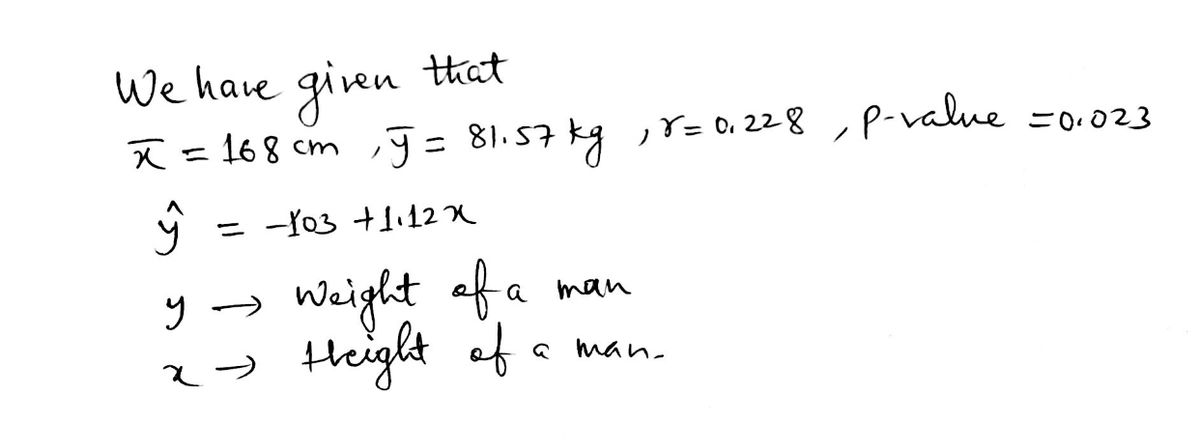 We have given that
x̄ = 168 cm , ȳ = 81.57 kg , r = 0.228 , p-value = 0.023
ŷ = -103 + 1.12x
y → Weight of a man
x → Height of a man.